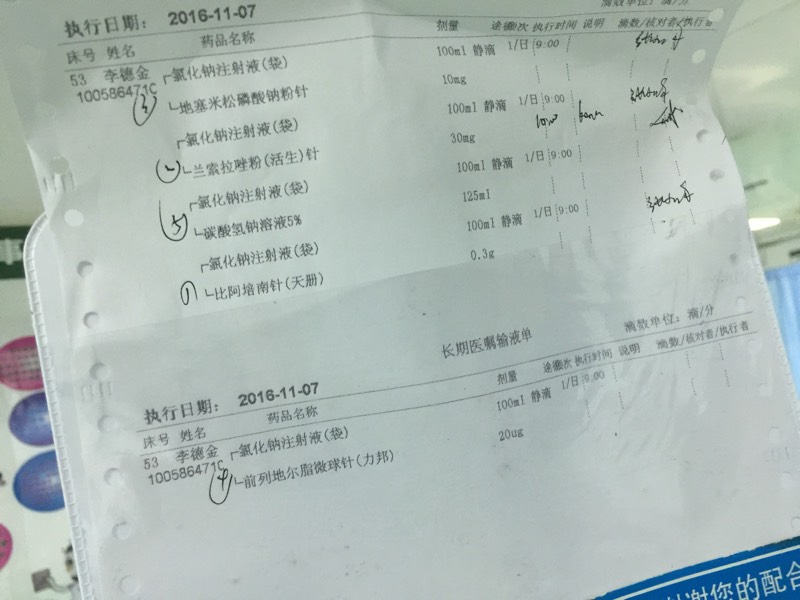 滴数单位：滴/分
执行日期： 2016-11-07
床号 姓名 药品名称 剂量 途径 频次 执行时间 说明 滴数/核对者/执行者
53 李德金 ┌氯化钠注射液(袋) 100ml 静滴 1/日 9:00
100586471C ③ └地塞米松磷酸钠粉针 10mg
┌氯化钠注射液(袋) 100ml 静滴 1/日 9:00
② └兰索拉唑粉(活生)针 30mg
┌氯化钠注射液(袋) 100ml 静滴 1/日 9:00
⑤ └碳酸氢钠溶液5% 125ml
┌氯化钠注射液(袋) 100ml 静滴 1/日 9:00
① └比阿培南针(天册) 0.3g
长期医嘱输液单
滴数单位：滴/分
执行日期： 2016-11-07
床号 姓名 药品名称 剂量 途径 频次 执行时间 说明 滴数/核对者/执行者
53 李德金 ┌氯化钠注射液(袋) 100ml 静滴 1/日 9:00
100586471C ④ └前列地尔脂微球针(力邦) 20ug
谢您的配合